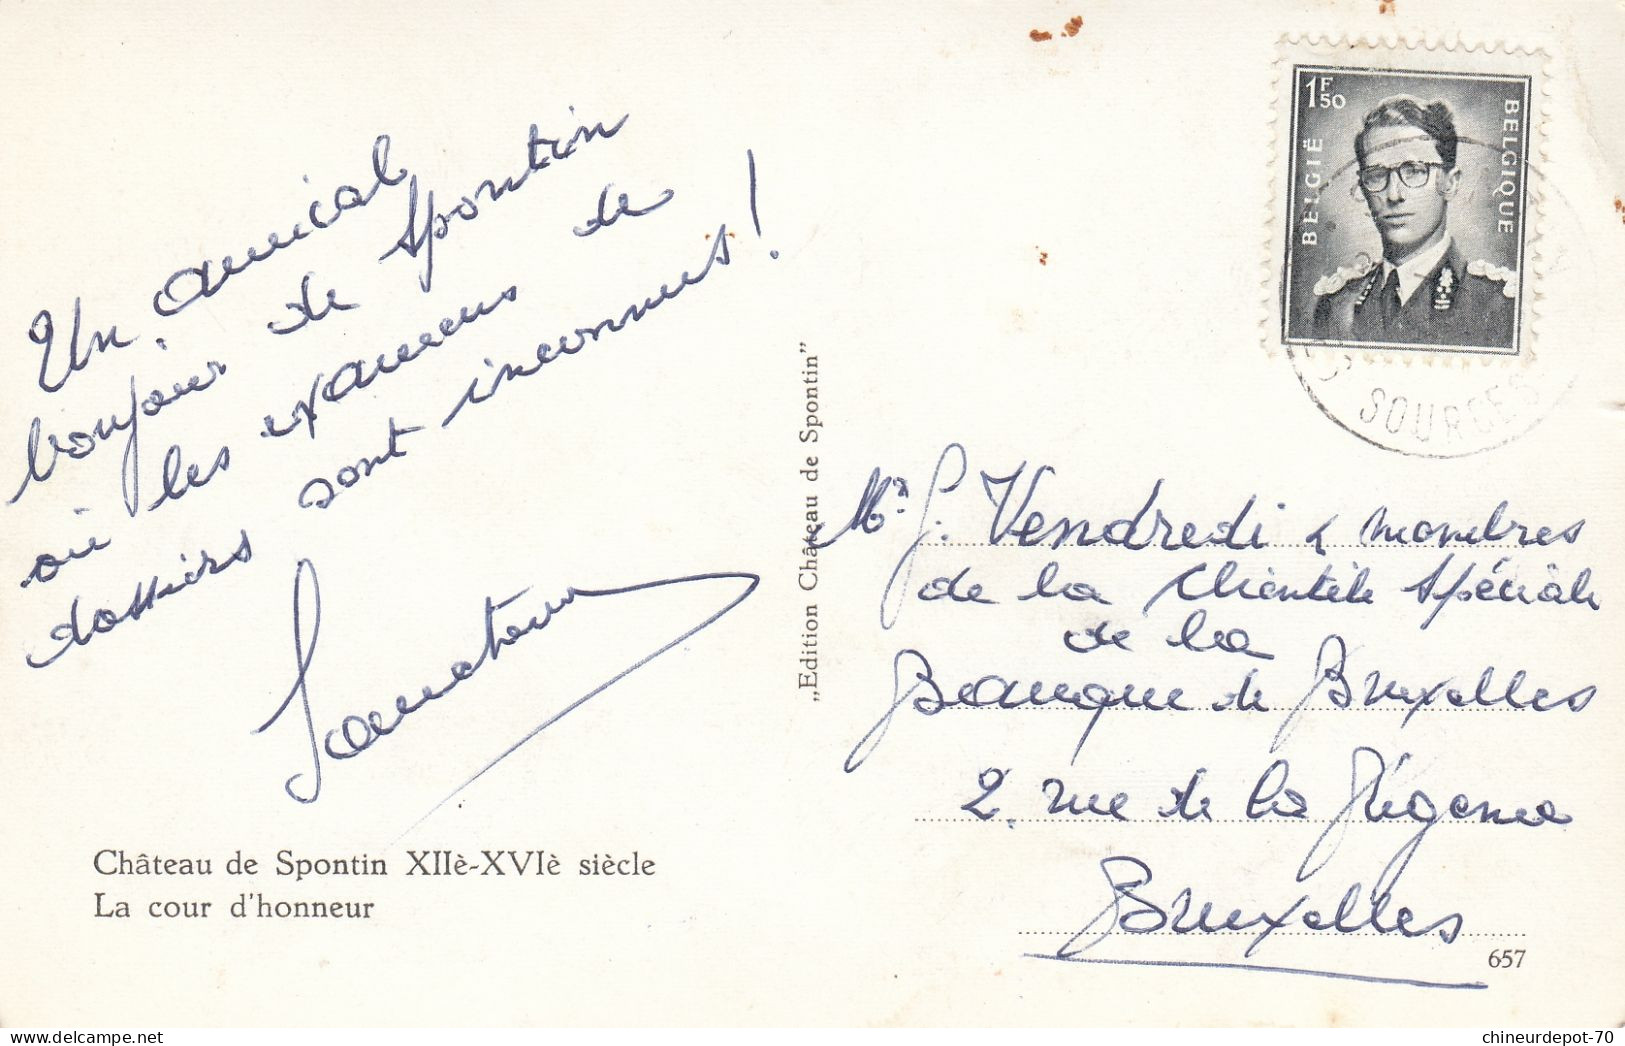 Un amical
bonjour de Spontin
où les examens de
dossiers sont inconnus!
Château de Spontin XIIè-XVIè siècle
La cour d'honneur
„Edition Château de Spontin”
1F50
BELGIË
BELGIQUE
SOURCES
Mr J. Vendredi & membres
de la Clientèle Spéciale
de la
Banque de Bruxelles
2, rue de la Régence
Bruxelles
657
chineurdepot-70